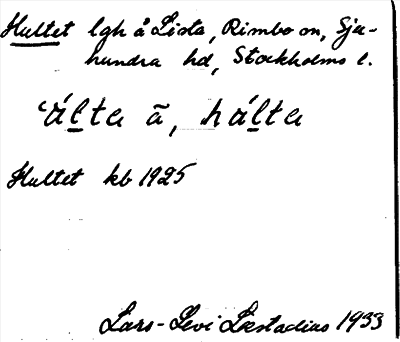 Hultet lgh å Lista, Rimbo sn, Sju-
hundra hd, Stockholms l.
‘ál̲ta ã, hál̲ta
Hultet kb 1925
Lars-Levi Læstadius 1933